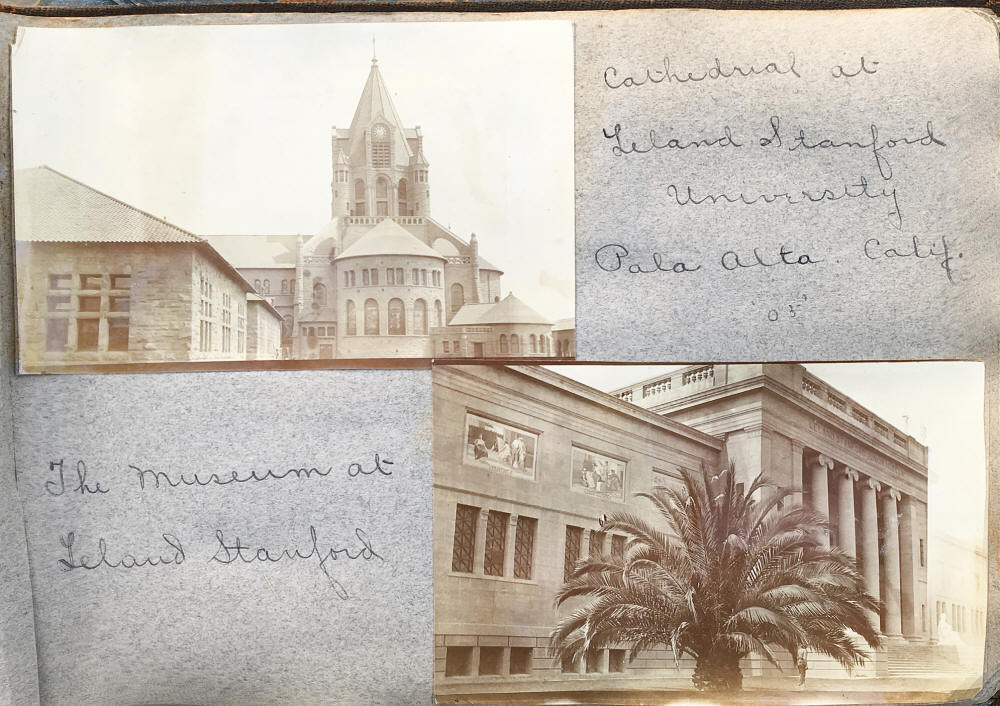 Cathedrial at
Leland Stanford
University
Pala Alta. Calif.
"03"
The Museum at
Leland Stanford